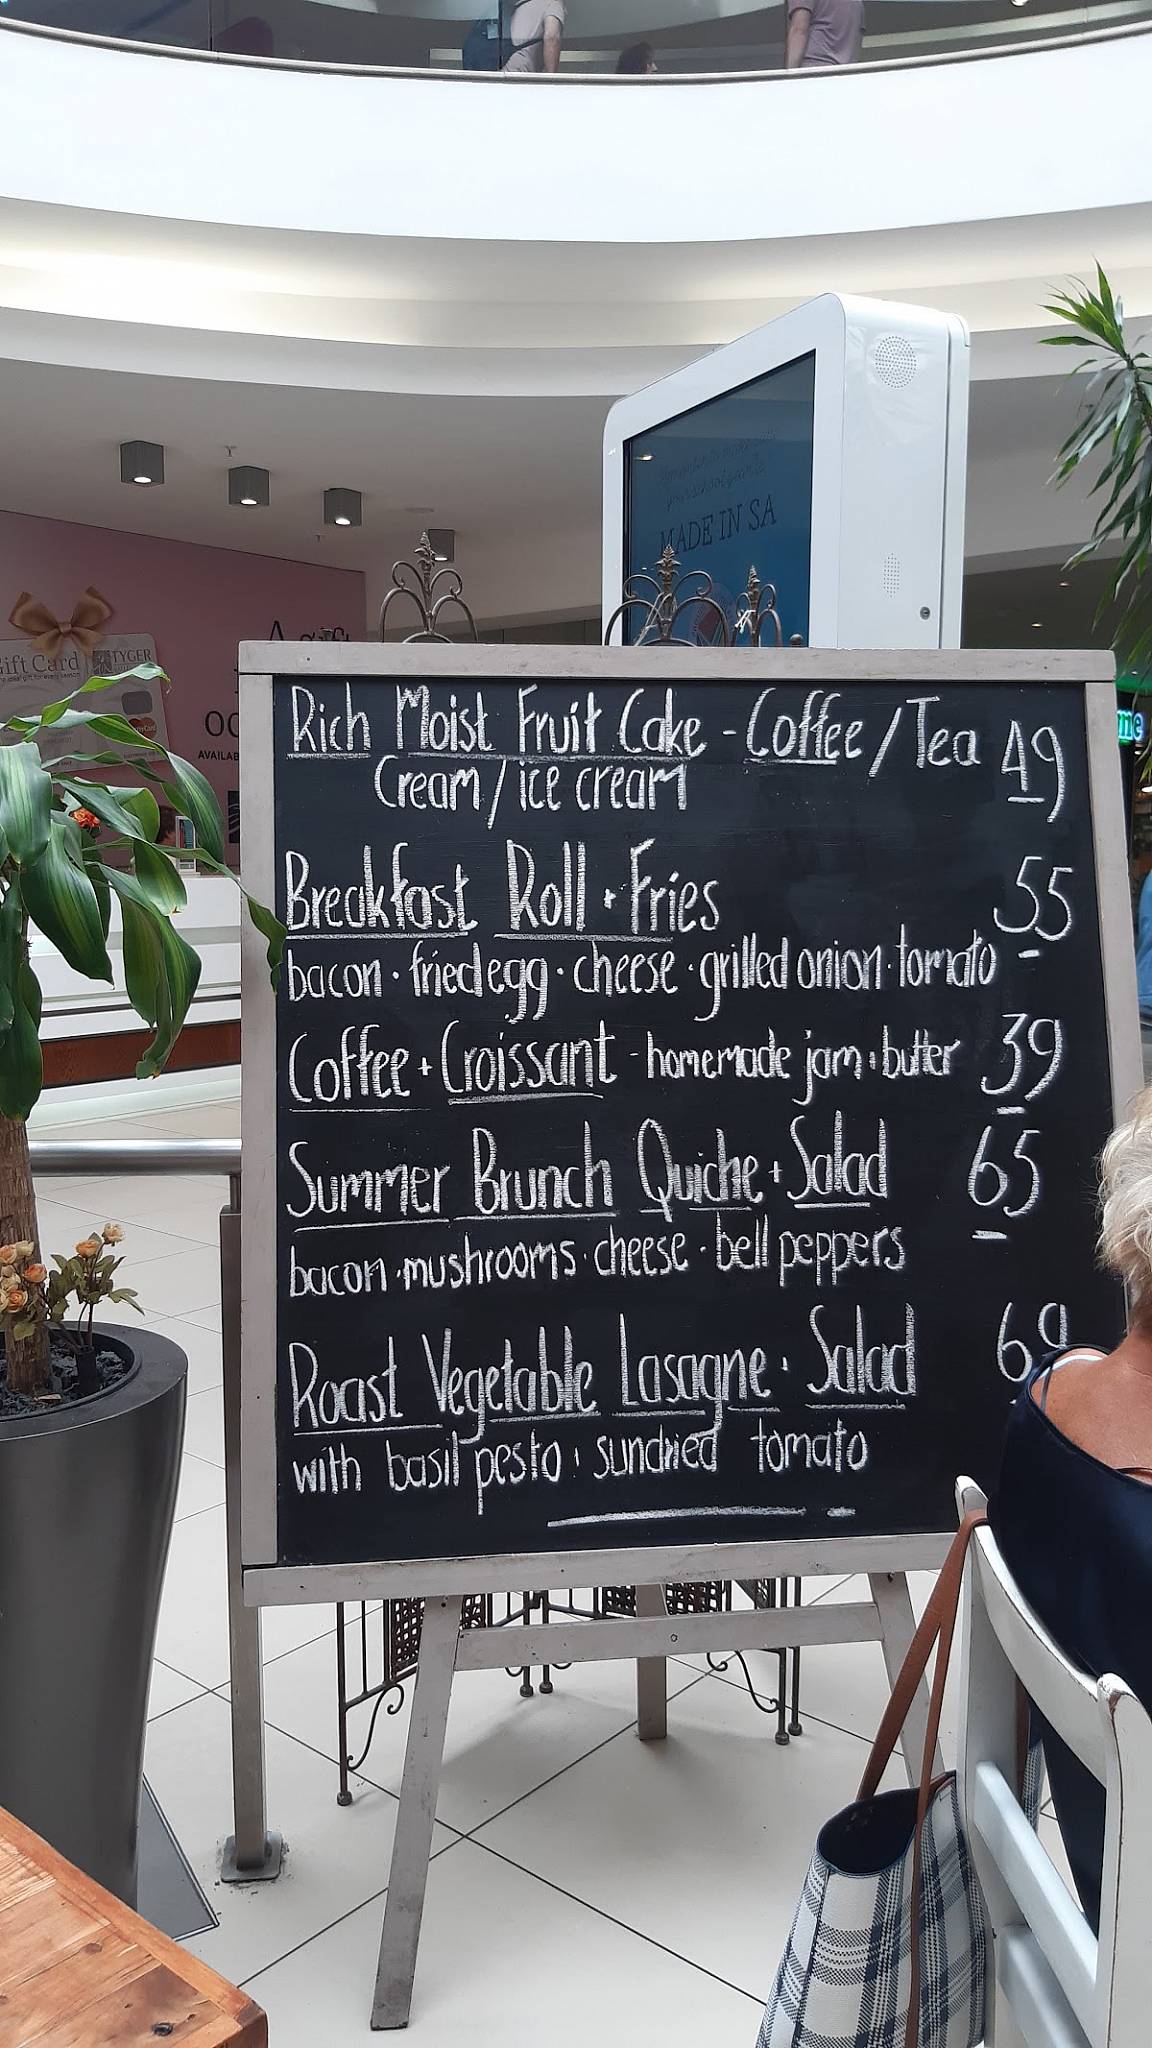 MADE IN SA
Gift Card
TYGER
A gift
AVAILAB
Rich Moist Fruit Cake - Coffee / Tea 49
Cream / ice cream
Breakfast Roll + Fries 55
bacon · fried egg · cheese · grilled onion · tomato
Coffee + Croissant - homemade jam + butter 39
Summer Brunch Quiche + Salad 65
bacon · mushrooms · cheese · bell peppers
Roast Vegetable Lasagne · Salad 69
with basil pesto + sundried tomato